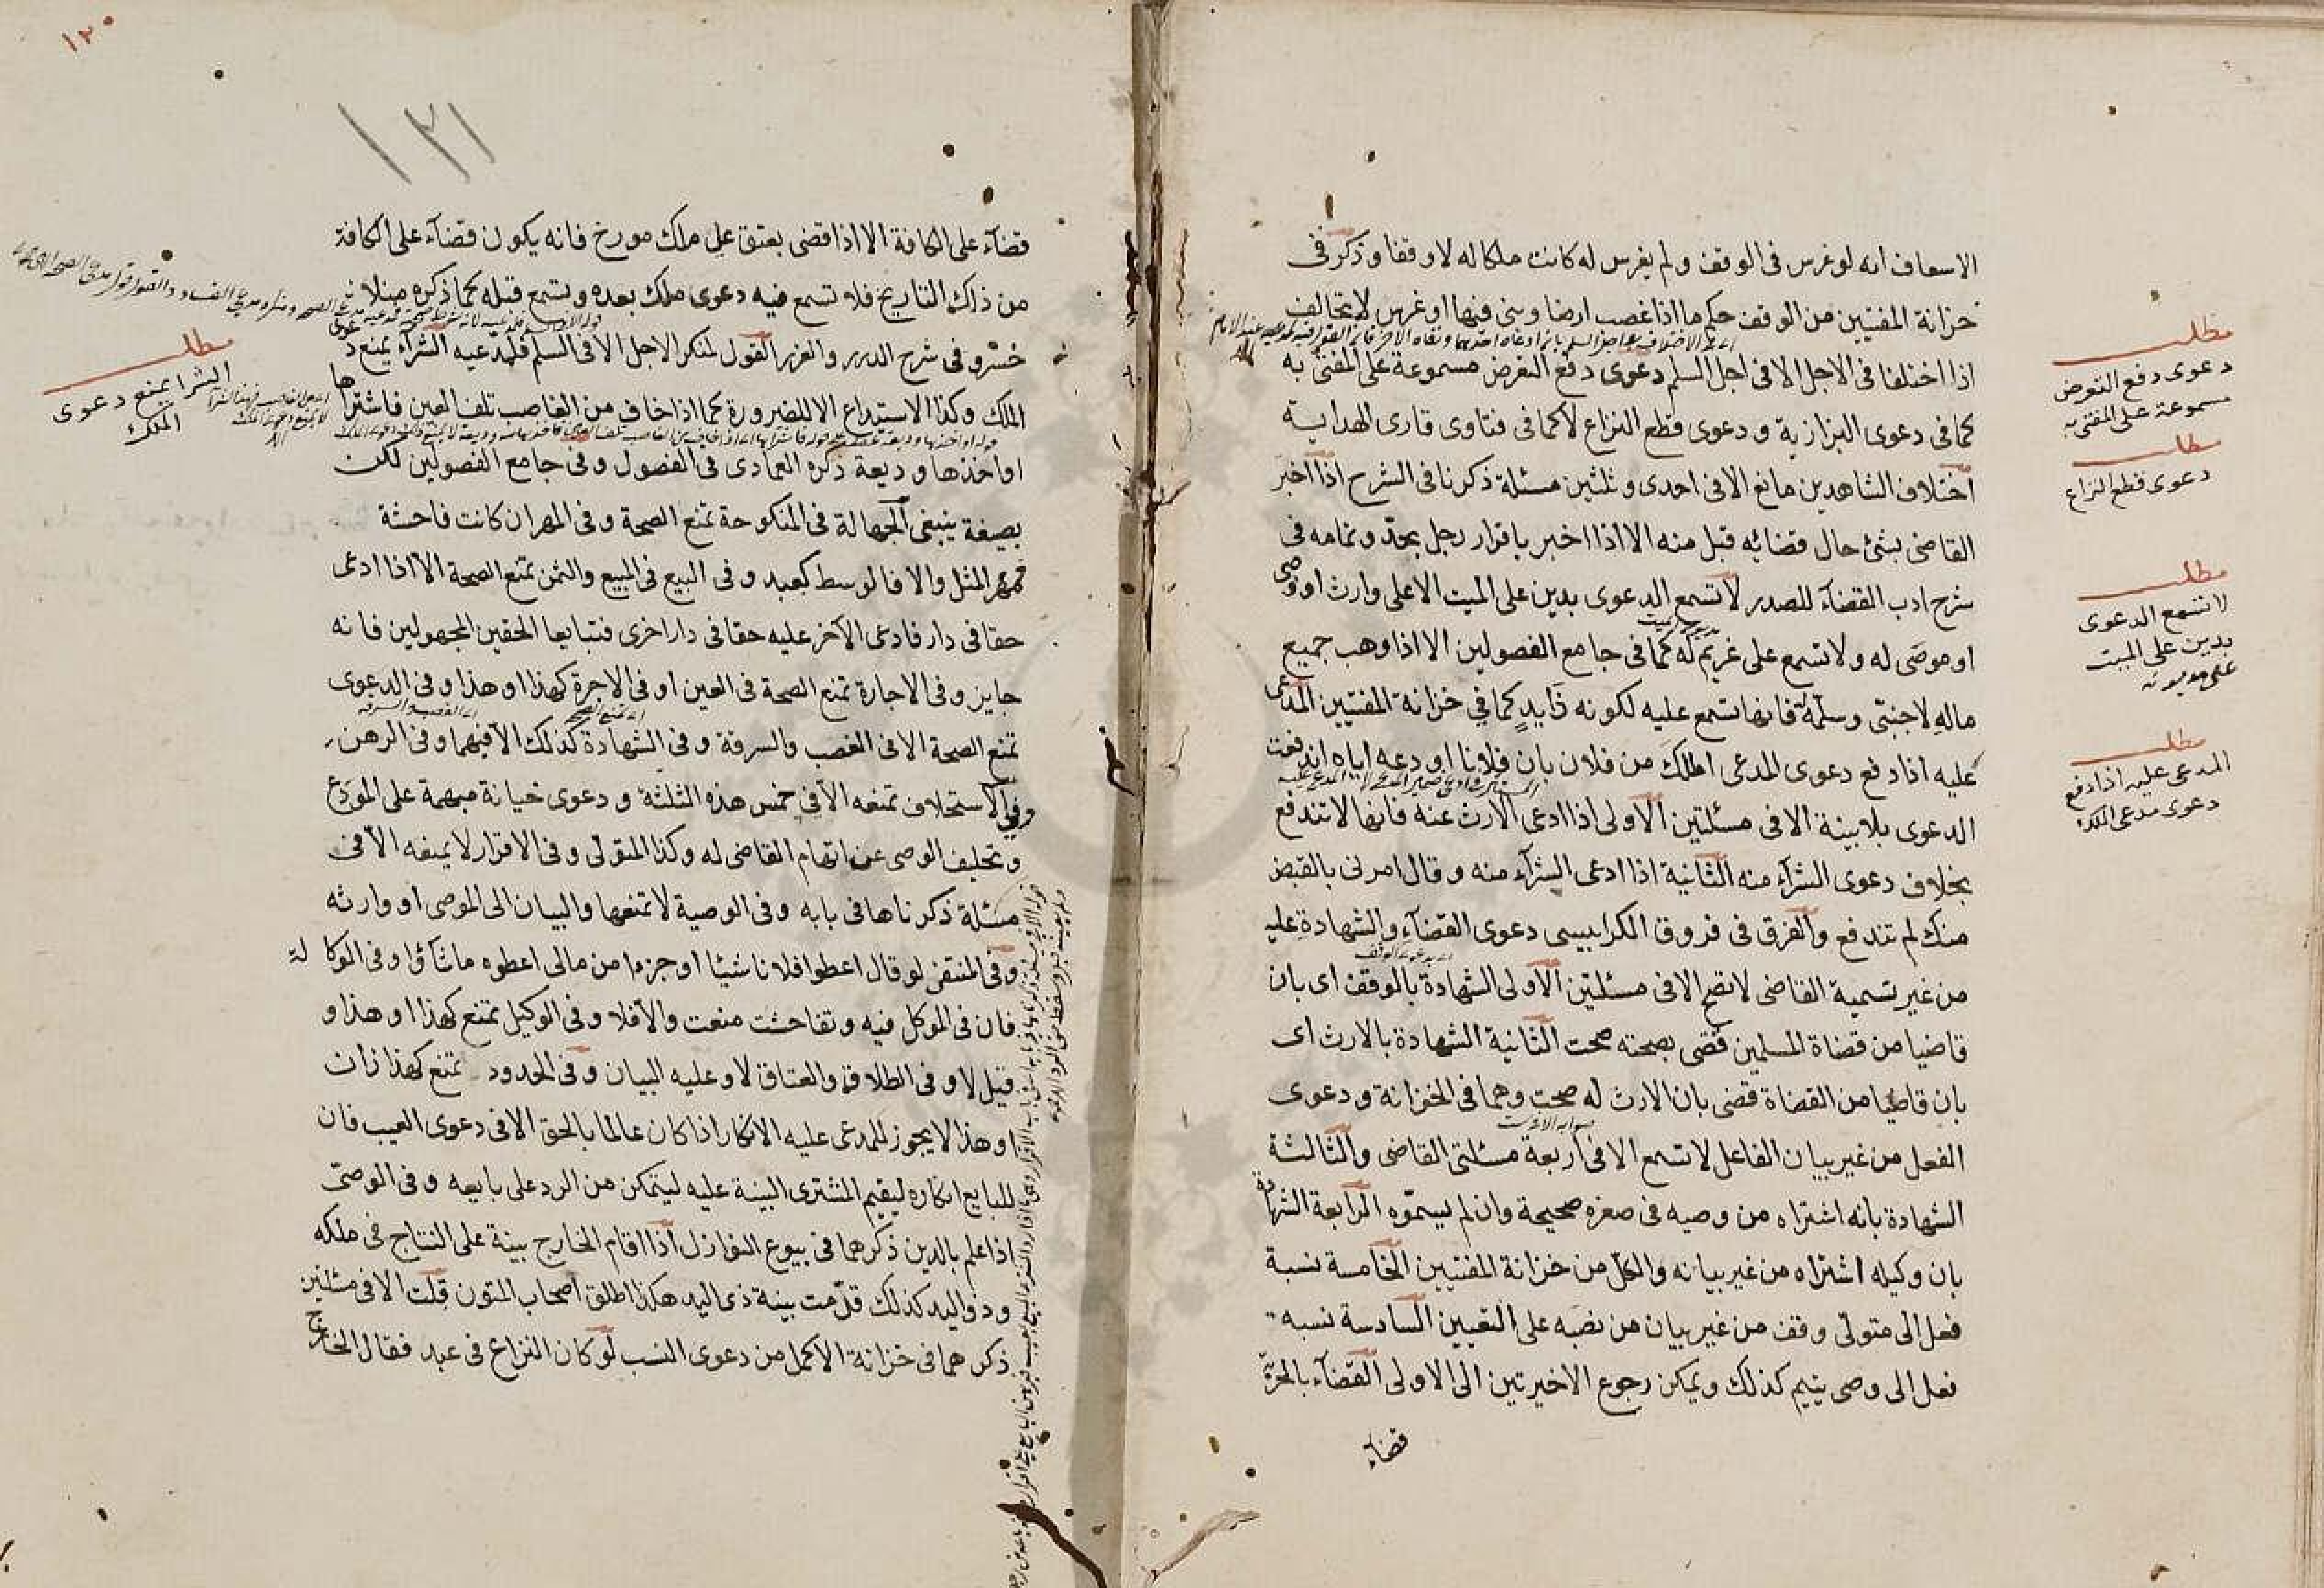 الاسعاف انه لو غرس فى الوقف ولم يغرس له كانت ملكا له لا وقفا وذكر فى
خزانة المفتيين من الوقف حكم ما اذا غصب ارضا وبنى فيها او غرس لا تحالف
اذا اختلفا فى الاجل الا فى اجل السلم دعوى دفع التعرض مسموعة على المفتى به
كما فى دعوى البزازية ودعوى قطع النزاع لا كما فى فتاوى قارى الهداية
اختلاف الشاهدين مانع الا فى احدى وثلثين مسئلة ذكرنا فى الشرح اذا اخبر
القاضى بشئ حال قضائه قبل منه الا اذا اخبر باقرار رجل بحد وتمامه فى
شرح ادب القضآء للصدر لا تسمع الدعوى بدين على الميت الا على وارث او وصى
او موصى له ولا تسمع على غريم له كما فى جامع الفصولين الا اذا وهب جميع
ماله لاجنبى وسلمه فانها تسمع عليه لكونه ذا يد كما فى خزانة المفتيين المدعى
عليه اذا دفع دعوى المدعى الملك من فلان بان فلانا اودعه اياه اندفعت
الدعوى بلا بينة الا فى مسئلتين الاولى اذا ادعى الارث عنه فانها لا تندفع
بخلاف دعوى الشرآء منه الثانية اذا ادعى الشرآء منه وقال امرنى بالقبض
منك لم تندفع والفرق فى فروق الكرابيسى دعوى القضآء والشهادة عليه
من غير تسمية القاضى لا تصح الا فى مسئلتين الاولى الشهادة بالوقف اى بان
قاضيا من قضاة المسلمين قضى بصحته صحت الثانية الشهادة بالارث اى
بان قاضيا من القضاة قضى بان الارث له صحت وهما فى الخزانة ودعوى
الفعل من غير بيان الفاعل لا تسمع الا فى اربعة مسئلتى القاضى والثالثة
الشهادة بانه اشتراه من وصيه فى صغره صحيحة وان لم يسموه الرابعة الشهادة
بان وكيله اشتراه من غير بيانه والكل من خزانة المفتيين الخامسة نسبة
فعل الى متولى وقف من غير بيان من نصبه على التعيين السادسة نسبه
فعل الى وصى يتيم كذلك ويمكن رجوع الاخيرتين الى الاولى القضآء بالحرية
قضآء
مطلب
دعوى دفع التعرض
مسموعة على المفتى به
مطلب
دعوى قطع النزاع
مطلب
لا تسمع الدعوى
بدين على الميت
على مديونه
مطلب
المدعى عليه اذا دفع
دعوى مدعى الملك
١٣٠
١٣١
قضآء على الكافة الا اذا قضى بعتق عن ملك مورخ فانه يكون قضآء على الكافة
من ذلك التاريخ فلا تسمع فيه دعوى ملك بعده وتسمع قبله كما ذكره منلا
خسرو فى شرح الدرر والغرر القول لمنكر الاجل الا فى السلم فلمدعيه الشرآء يمنع دعوى
الملك وكذا الاستيداع الا للضرورة كما اذا خاف من الغاصب تلف العين فاشتراها
او اخذها وديعة ذكره العمادى فى الفصول وفى جامع الفصولين لكن
بصيغة ينبغى الجهالة فى المنكوحة تمنع الصحة وفى المهر ان كانت فاحشة
فمهر المثل والا فالوسط كعبد وفى البيع فى المبيع والثمن تمنع الصحة الا اذا ادعى
حقا فى دار فادعى الآخر عليه حقا فى دار اخرى فتبايعا الحقين المجهولين فانه
جايز وفى الاجارة تمنع الصحة فى العين او فى الاجرة كهذا او هذا وفى الدعوى
تمنع الصحة الا فى الغصب والسرقة وفى الشهادة كذلك الا فيهما وفى الرهن
وفى الاستحلاف تمنعه الا فى خمس هذه الثلثة ودعوى خيانة مبهمة على المودع
وتحليف الوصى عند اتهام القاضى له وكذا المتولى وفى الاقرار لا يمنعه الا فى
مسئلة ذكرناها فى بابه وفى الوصية لا تمنعها والبيان الى الموصى او وارثه
وفى المنتقى لو قال اعطوا فلانا شيئا او جزءا من مالى اعطوه ما شآؤا وفى الوكالة
فان فى الموكل فيه وتفاحشت منعت والا فلا وفى الوكيل تمنع كهذا او هذا و
قيل لا وفى الطلاق والعتاق لا وعليه البيان وفى الحدود تمنع كهذا زان
او هذا لا يجوز للمدعى عليه الانكار اذا كان عالما بالحق الا فى دعوى العيب فان
للبايع انكاره ليقيم المشترى البينة عليه ليتمكن من الرد على بايعه وفى الوصى
اذا علم بالدين ذكرهما فى بيوع النوازل اذا اقام الخارج بينة على النتاج فى ملكه
وذو اليد كذلك قدمت بينة ذى اليد هكذا اطلق اصحاب المتون قلت الا فى مسئلتين
ذكرهما فى خزانة الاكمل من دعوى النسب لو كان النزاع فى عبد فقال الخارج
مطلب
الشرا يمنع دعوى
الملك